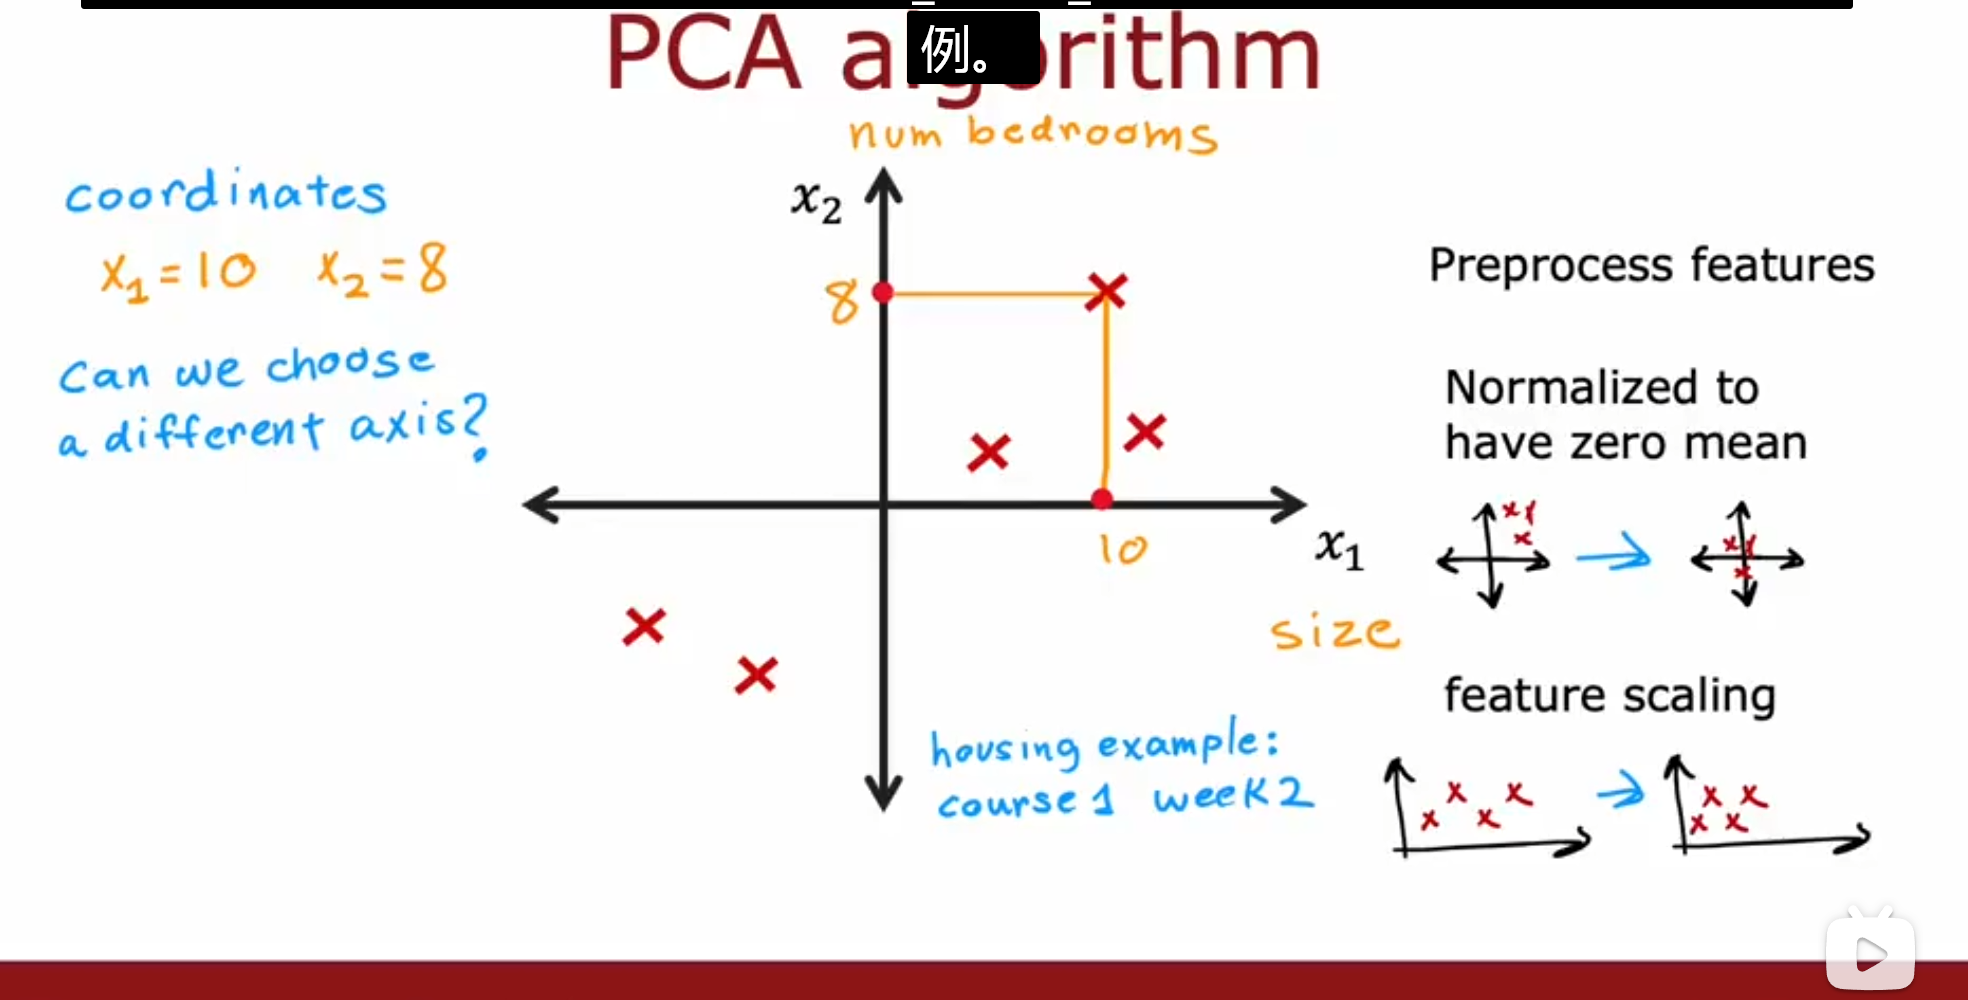 PCA algorithm
例。
num bedrooms
coordinates
x₁=10 x₂=8
Can we choose
a different axis?
x₂
8
10
x₁
size
housing example:
course 1 week 2
Preprocess features
Normalized to
have zero mean
feature scaling